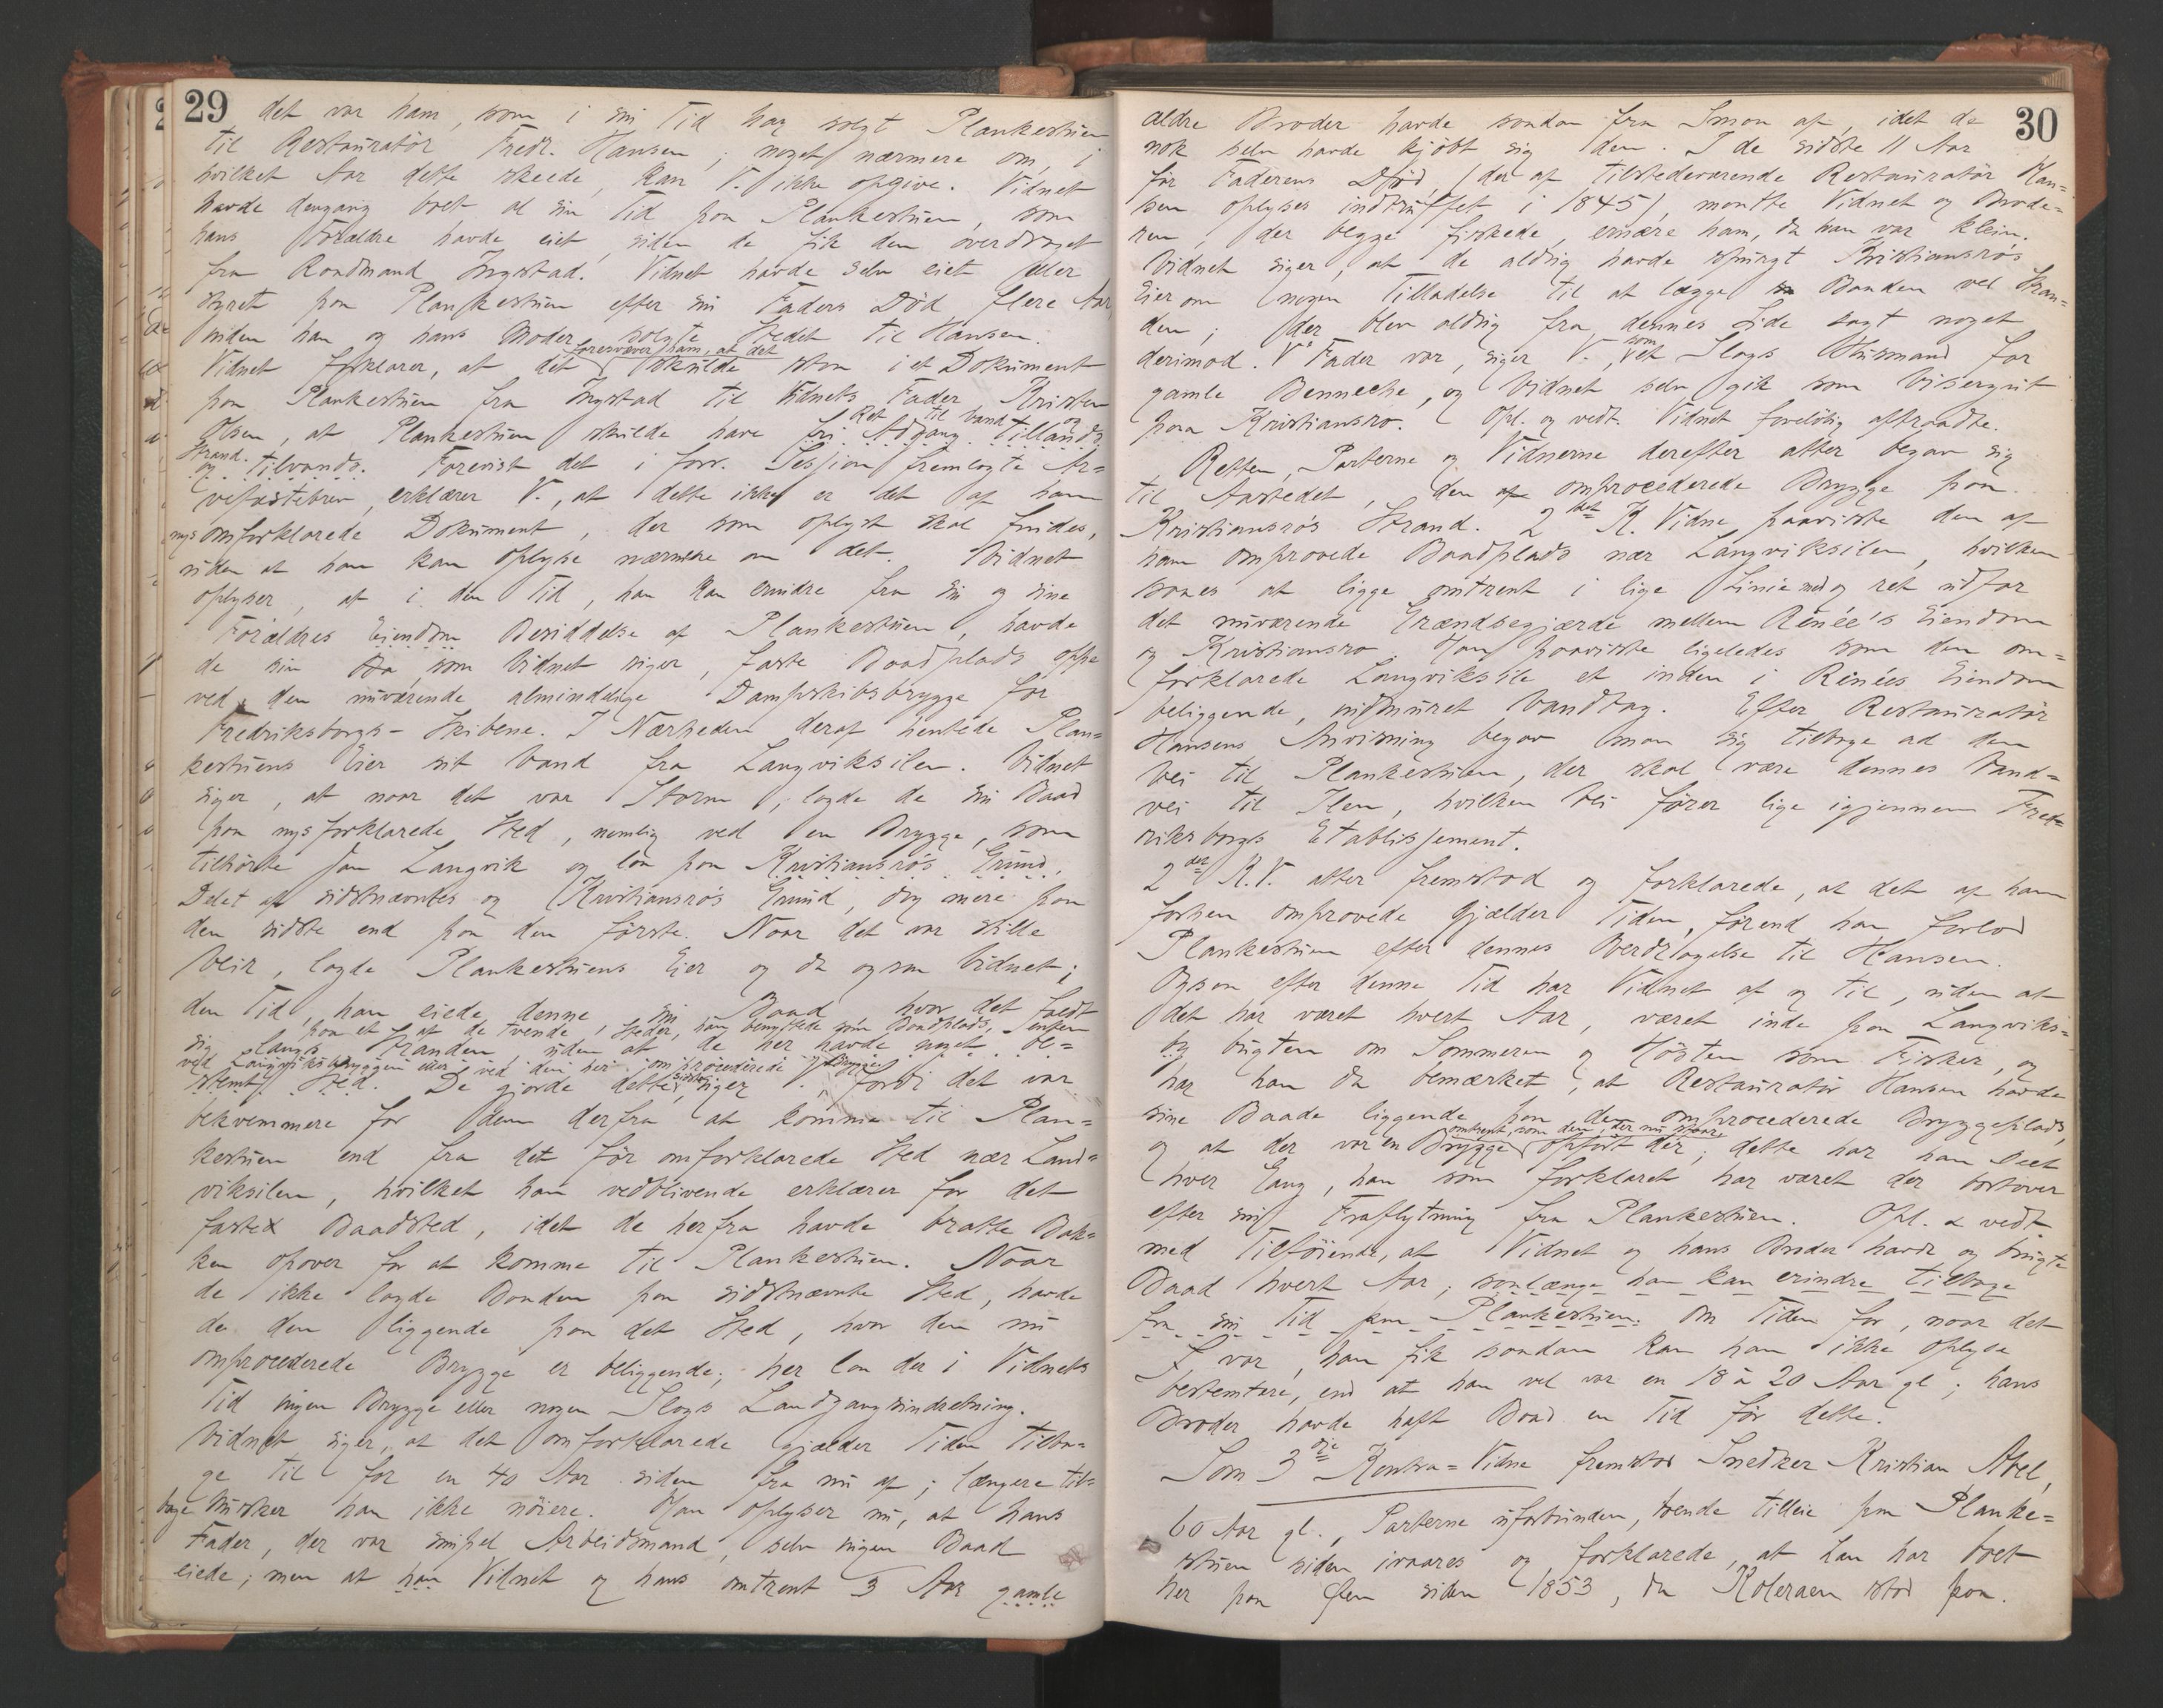 29
det var ham, som i sin Tid har solgt Plankestuen
til Restauratör Fredr. Hansen; noget nærmere om, i
hvilket Aar dette skeede, kan V. ikke opgive. Vidnet
havde dengang boet al sin Tid paa Plankestuen, som
hans Forældre havde eiet, siden de fik den overdraget
fra Raadmand Ingstad. Vidnet havde selv eiet eller
styret paa Plankestuen efter sin Faders Död flere Aar,
inden han og hans Moder solgte Stedet til Hansen.
foresvæver ham, at det
Vidnet forklarer, at det skulde staa i et Dokument
paa Plankestuen fra Ingstad til Vidnets Fader Kristen
Ret til Vand og
Olsen, at Plankestuen skulde have fri Adgang tillands
Strand.
og tilvands. Forevist det i forr. Session fremlagte Ar=
vefæstebrev, erklærer V., at dette ikke er det af ham
nys omforklarede Dokument, der som oplyst skal findes,
uden at han kan oplyse nærmere om det. Vidnet
oplyser, at i den Tid, han kan erindre fra sin og sine
Forældres Eiendom Besiddelse af Plankestuen, havde
de sin som Vidnet siger, faste Baadplads oppe
ved den nuværende almindelige Dampskibsbrygge for
Fredriksborgs-Skibene. I Nærheden deraf hentede Plan=
kestuens Eier sit Vand fra Langviksilen. Vidnet
siger, at naar det var Storm, lagde de sin Baad
paa nysforklarede Sted, nemlig ved en Brygge, som
tilhörte Jan Langvik og laa paa Kristiansro's Grund.
Delet af sidstnævntes og Kristiansro's Grund, dog mere paa
den sidste end paa den förste. Naar det var stille
Veir, lagde Plankestuens Eier og da ogsaa Vidnet i
den Tid, han eiede denne sin Baad hvor det faldt
paa et af de tvende Steder, han benyttede sin Baadplads, enten
sig langs Stranden, uden at de her havde noget be=
ved Langviksbryggen eller ved den her omprocederede Brygge
stemt Sted. De gjorde dette sidste, siger V., fordi det var
bekvemmere for dem derfra at komme til Plan=
kestuen end fra det för omforklarede Sted nær Land=
viksilen, hvilket han vedblivende erklærer for det
faste Baadsted, idet de herfra havde bratte Bak=
ken opover for at komme til Plankestuen. Naar
de ikke lagde Baaden paa sidstnævnte Sted, havde
de den liggende paa det Sted, hvor den nu
omprocederede Brygge er beliggende; her laa der i Vidnets
Tid ingen Brygge eller nogen Slags Landgangsindretning.
Vidnet siger, at det omforklarede gjælder Tiden tilba=
ge til for en 40 Aar siden fra nu af; længere til=
bage husker han ikke nöiere. Han oplyser nu, at hans
Fader, der var simpel Arbeidsmand, selv ingen Baad
eiede; men at han Vidnet og hans omtrent 3 Aar gamle
30
ældre Broder havde saadan fra Smaa af, idet de
nok selv havde kjöbt sig den. I de sidste 11 Aar
för Faderens Död, (der af tilstedeværende Restauratör Han=
sen oplyses indtruffet i 1845), maatte Vidnet og Brode=
ren, der begge fiskede, ernære ham, da han var klein.
Vidnet siger, at de aldrig havde spurgt Kristiansro's
Eier om nogen Tilladelse til at lægge Baaden ved Stran=
den; der blev aldrig fra dennes Side sagt noget
som
derimod. V's Fader var, siger V., et Slags Husmand for
gamle Benneche, og Vidnet selv gik som Visergut
paa Kristiansro. Opl. og vedt. Vidnet forelöbig aftraadte.
Retten, Parterne og Vidnerne derefter atter begav sig
til Aastedet, den omprocederede Brygge paa
Kristiansro's Strand. 2det K. Vidne paaviste den af
ham omprovede Baadplads nær Langviksilen, hvilken
saaes at ligge omtrent i lige Linie med og ret udfor
det nuværende Grændsegjærde mellem Rénée's Eiendom
og Kristiansro. Han paaviste ligeledes som den om=
forklarede Langviksile et inden i Rénées Eiendom
beliggende, udmuret Vandtag. Efter Restauratör
Hansens Anvisning begav man sig tilbage ad den
Vei til Plankestuen, der skal være dennes Vand=
vei til Ilen, hvilken Vei förer lige igjennem Fred=
riksborgs Etablissement.
2det K.V. atter fremstod og forklarede, at det af ham
forhen omprovede gjælder Tiden, förend han forlod
Plankestuen efter dennes Overdragelse til Hansen.
Ogsaa efter denne Tid har Vidnet af og til, uden at
det har været hvert Aar, været inde paa Langviks=
bugten om Sommeren og Hösten som Fisker, og
har han da bemærket, at Restauratör Hansen havde
sine Baade liggende paa den omprocederede Bryggeplads,
omtrent som den, der nu staar,
og at der var en Brygge opfört der; dette har han seet
hver Gang, han som forklaret har været der bortover
efter sin Fraflytning fra Plankestuen. Opl. & vedt.
med Tilföiende, at Vidnet og hans Broder havde og brugte
Baad hvert Aar, saalænge han kan erindre tilbage
fra sin Tid paa Plankestuen. Om Tiden for, naar det
var, han fik saadan kan han ikke oplyse
bestemtere, end at han vel var en 18 à 20 Aar gl; hans
Broder havde haft Baad en Tid för dette.
Som 3die Kontra=Vidne fremstod Snedker Kristian Abel,
60 Aar gl. Parterne uforbunden, boende tilleie paa Planke=
stuen siden ivaares og forklarede, at han har boet
her paa Öen siden 1853, da Koleraen stod paa.